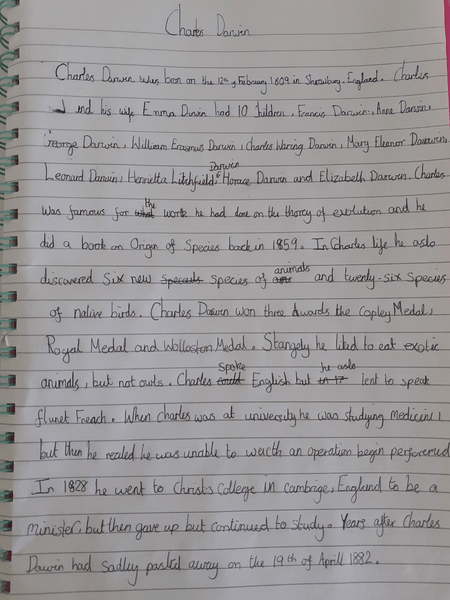 Charles Darwin
Charles Darwin was born on the 12th of February 1809 in Shrewsbury England. Charles
and his wife Emma Darwin had 10 Children, Francis Darwin, Anne Darwin,
George Darwin, William Erasmus Darwin, Charles Waring Darwin, Mary Eleanor Daarwin,
Darwin
Leonard Darwin, Henrietta Litchfield, Horace Darwin and Elizabeth Darwin. Charles
the
was famous for what work he had done on the thorey of evolution and he
did a book on Origin of Species back in 1859. In Charles life he aslo
animals
discovered Six new species of and twenty-six Species
of native birds. Charles Darwin won three Awards the Copley Medal,
Royal Medal and Wollaston Medal. Stangely he liked to eat exotic
spoke he aslo
animals, but not owls. Charles could English but lent to speak
flunet Freach. When Charles was at university he was studying medicine,
but then he realed he was unable to wacth an operation begin perforemed
In 1828 he went to Christs College in Cambrige, England to be a
minister, but then gave up but continued to study. Years after Charles
Darwin had Sadley pasted away on the 19th of Aprill 1882.